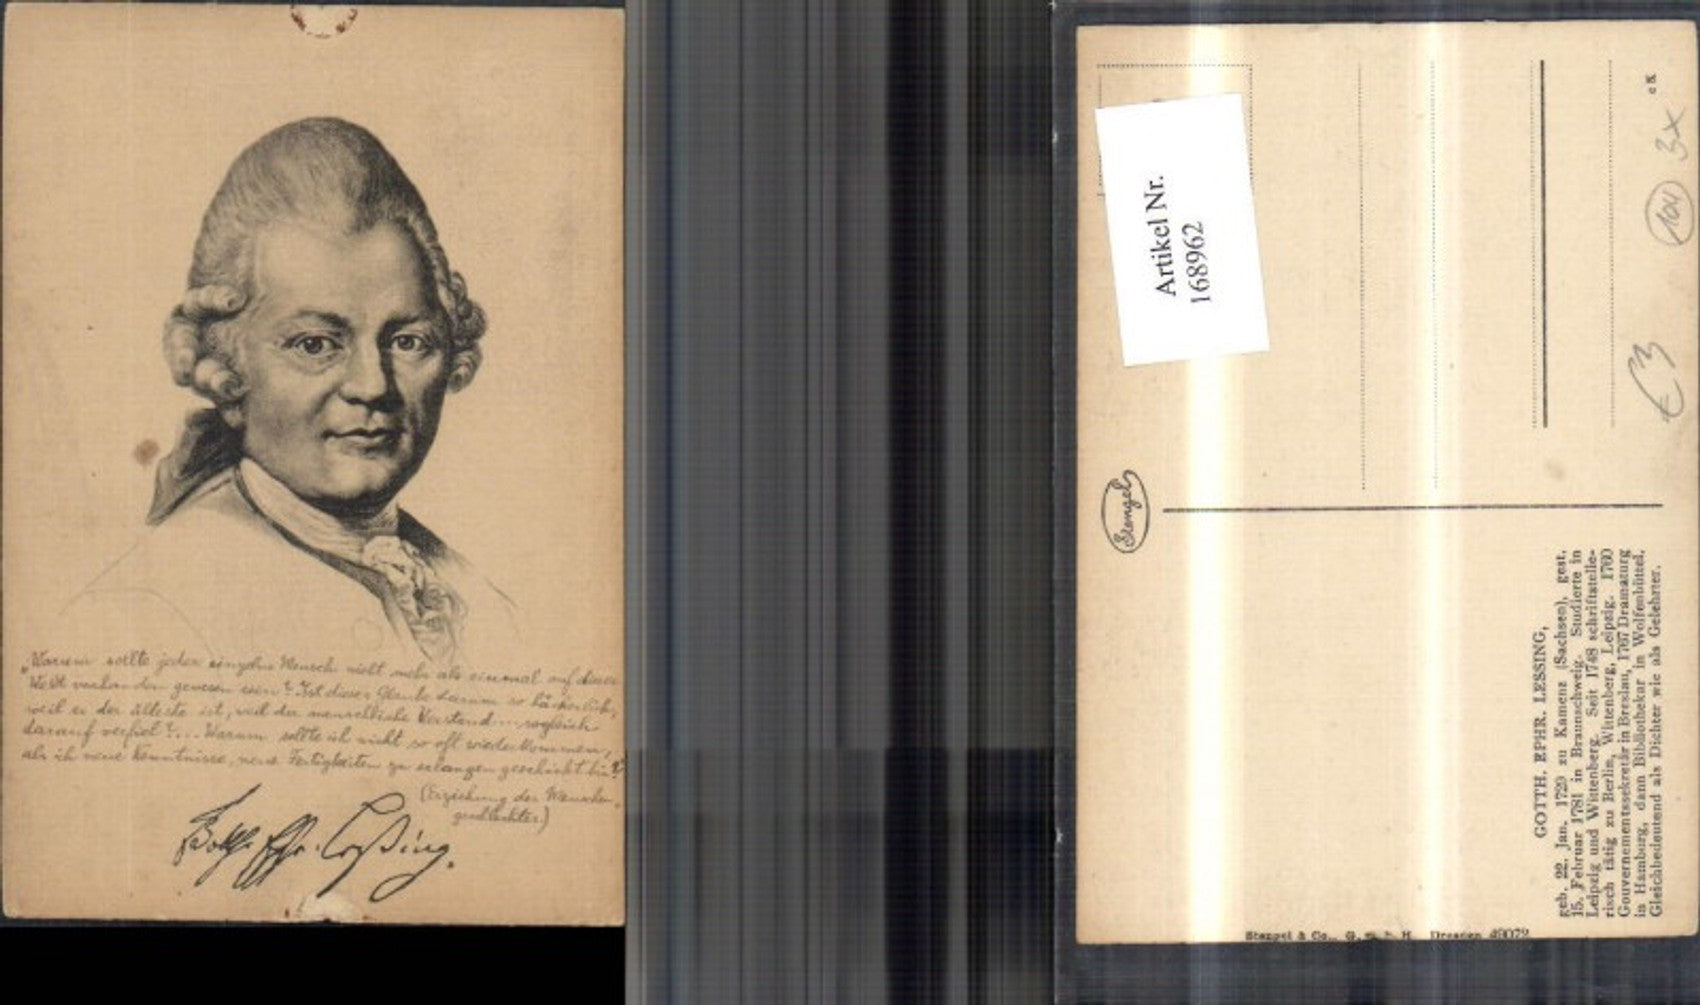 „Warum sollte jeder einzelne Mensch nicht mehr als einmal auf dieser
Welt vorhanden gewesen sein? Ist dieser Glaube darum so lächerlich,
weil er der älteste ist, weil der menschliche Verstand sogleich
darauf verfiel?... Warum sollte ich nicht so oft wiederkommen,
als ich neue Kenntnisse, neue Fertigkeiten zu erlangen geschickt bin?
(Erziehung des Menschen-
geschlechtes)
Gotth. Ephr. Leßing.
Artikel Nr.
168962
Stengel
€3
104 3x
e K
GOTTH. EPHR. LESSING,
geb. 22. Jan. 1729 zu Kamenz (Sachsen), gest.
15. Februar 1781 in Braunschweig. Studierte in
Leipzig und Wittenberg. Seit 1748 schriftstelle-
risch tätig zu Berlin, Wittenberg, Leipzig. 1760
Gouvernementssekretär in Breslau, 1767 Dramaturg
in Hamburg, dann Bibliothekar in Wolfenbüttel.
Gleichbedeutend als Dichter wie als Gelehrter.
Stengel & Co., G. m. b. H. Dresden 49079